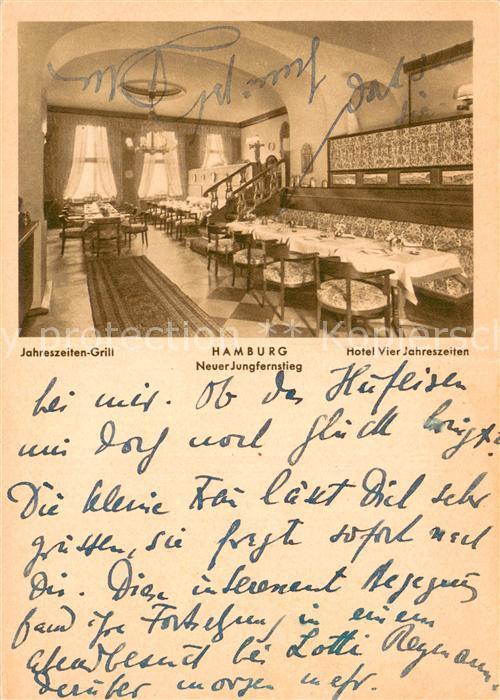 Jahreszeiten-Grill
HAMBURG
Neuer Jungfernstieg
Hotel Vier Jahreszeiten
bei mir. Ob das Hufeisen
mir doch noch Glück bringt?
Die kleine Frau lässt Dich sehr
grüssen, sie fragte sofort nach
Dir. Diese interessante Begegnung
fand ihre Fortsetzung in einem
Abendbesuch bei Lotti
Darüber morgen mehr.